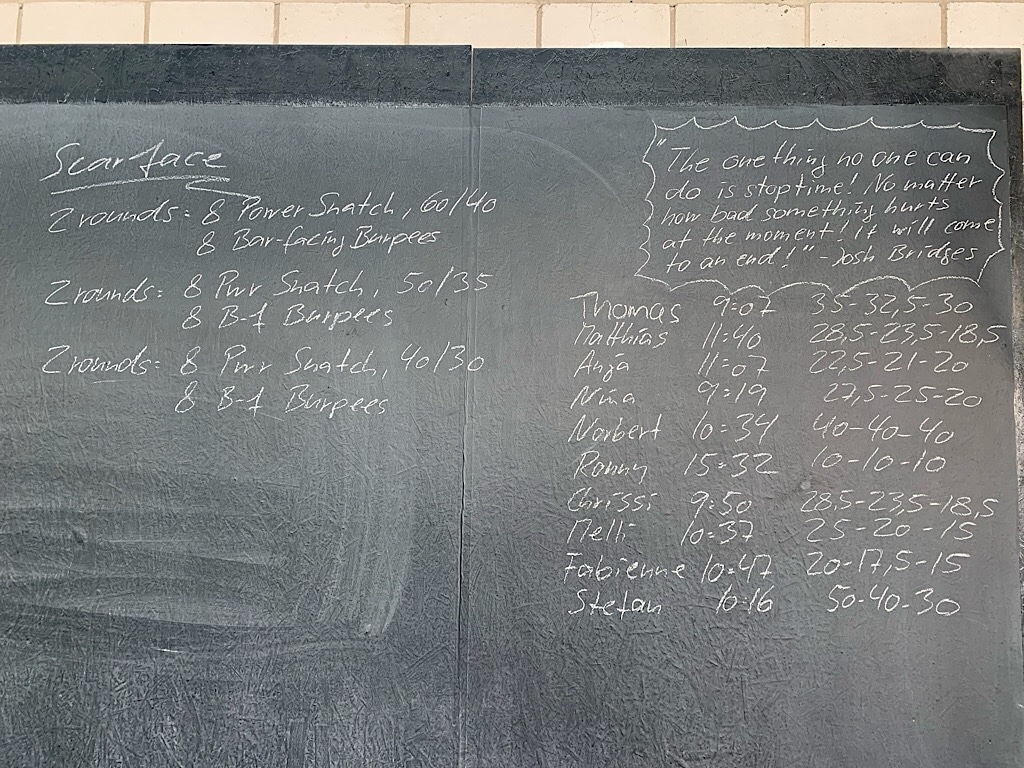 Scarface
2 rounds: 8 Power Snatch, 60/40
8 Bar-facing Burpees
2 rounds: 8 Pwr Snatch, 50/35
8 B-f Burpees
2 rounds: 8 Pwr Snatch, 40/30
8 B-f Burpees
"The one thing no one can
do is stop time! No matter
how bad something hurts
at the moment! it will come
to an end!" - Josh Bridges
Thomas 9:07 35-32,5-30
Matthias 11:40 28,5-23,5-18,5
Anja 11:07 22,5-21-20
Nina 9:19 27,5-25-20
Norbert 10:34 40-40-40
Ronny 15:32 10-10-10
Chrissi 9:50 28,5-23,5-18,5
Melli 10:37 25-20-15
Fabienne 10:47 20-17,5-15
Stefan 10:16 50-40-30